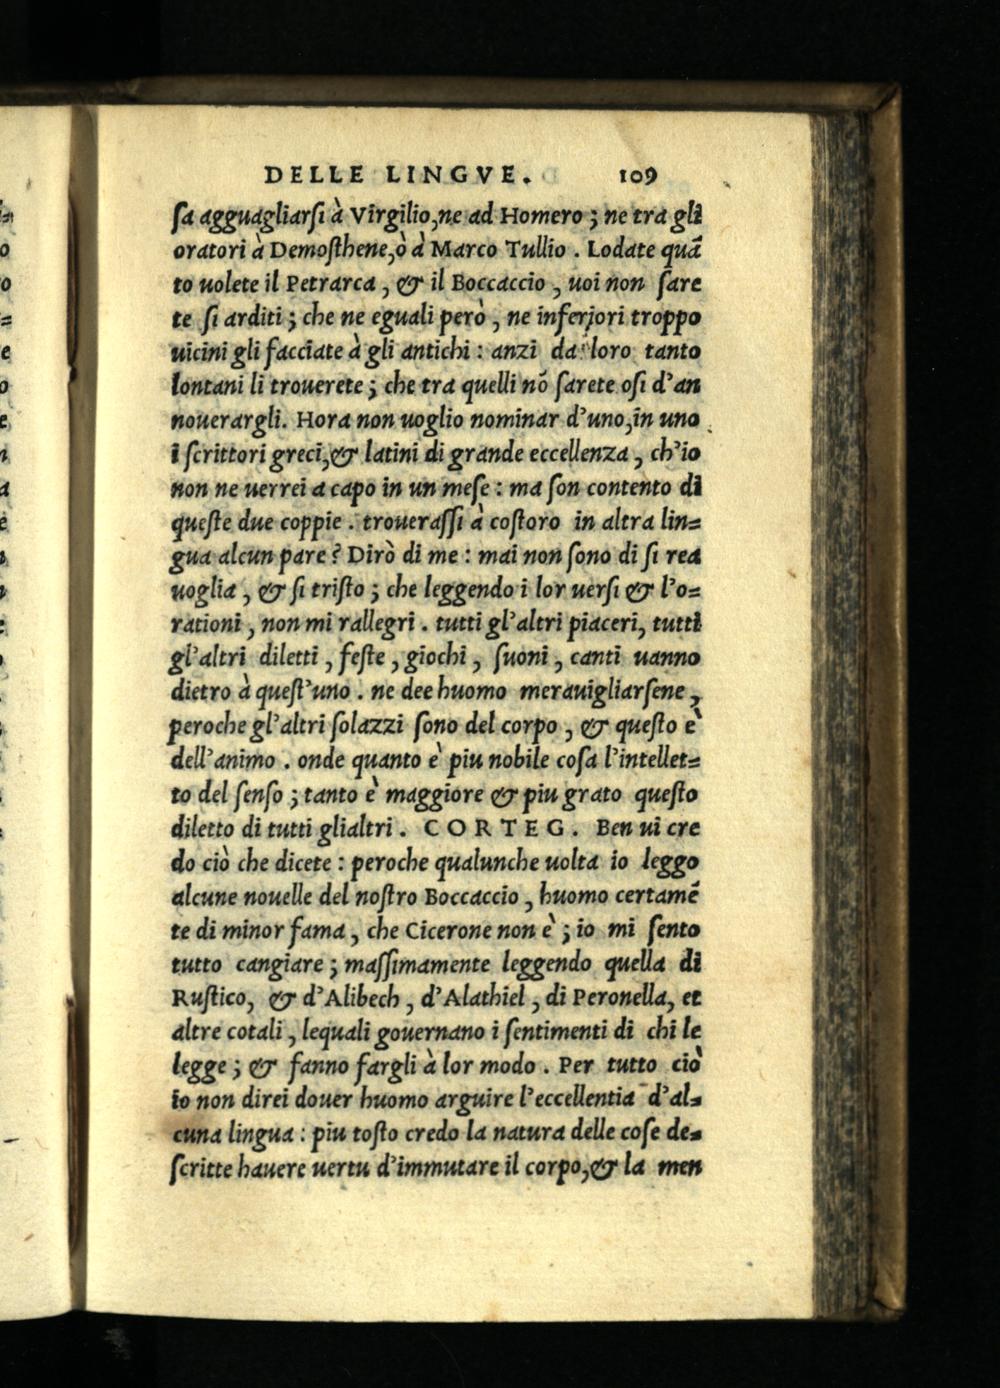 DELLE LINGVE. 109
ſa agguagliarſi à Virgilio,ne ad Homero ; ne tra gli
oratori à Demoſthene,ò à Marco Tullio . Lodate quã
to uolete il Petrarca , & il Boccaccio , uoi non ſare
te ſi arditi ; che ne eguali però , ne inferiori troppo
uicini gli facciate à gli antichi : anzi da loro tanto
lontani li trouerete ; che tra quelli nõ ſarete oſi d'an
nouerargli. Hora non uoglio nominar d'uno,in uno
i ſcrittori greci,& latini di grande eccellenza , ch'io
non ne uerrei a capo in un meſe : ma ſon contento di
queſte due coppie . troueraſſi à coſtoro in altra lin=
gua alcun pare ? Dirò di me : mai non ſono di ſi rea
uoglia , & ſi triſto ; che leggendo i lor uerſi & l'o=
rationi , non mi rallegri . tutti gl'altri piaceri, tutti
gl'altri diletti , feſte , giochi , ſuoni , canti uanno
dietro à queſt'uno . ne dee huomo merauigliarſene ,
peroche gl'altri ſolazzi ſono del corpo , & queſto è
dell'animo . onde quanto è piu nobile coſa l'intellet=
to del ſenſo ; tanto è maggiore & piu grato queſto
diletto di tutti glialtri . CORTEG. Ben ui cre
do ciò che dicete : peroche qualunche uolta io leggo
alcune nouelle del noſtro Boccaccio , huomo certamẽ
te di minor fama , che Cicerone non è ; io mi ſento
tutto cangiare ; maſſimamente leggendo quella di
Ruſtico, & d'Alibech , d'Alathiel , di Peronella, et
altre cotali , lequali gouernano i ſentimenti di chi le
legge ; & fanno fargli à lor modo . Per tutto ciò
io non direi douer huomo arguire l'eccellentia d'al=
cuna lingua : piu toſto credo la natura delle coſe de=
ſcritte hauere uertu d'immutare il corpo,& la men